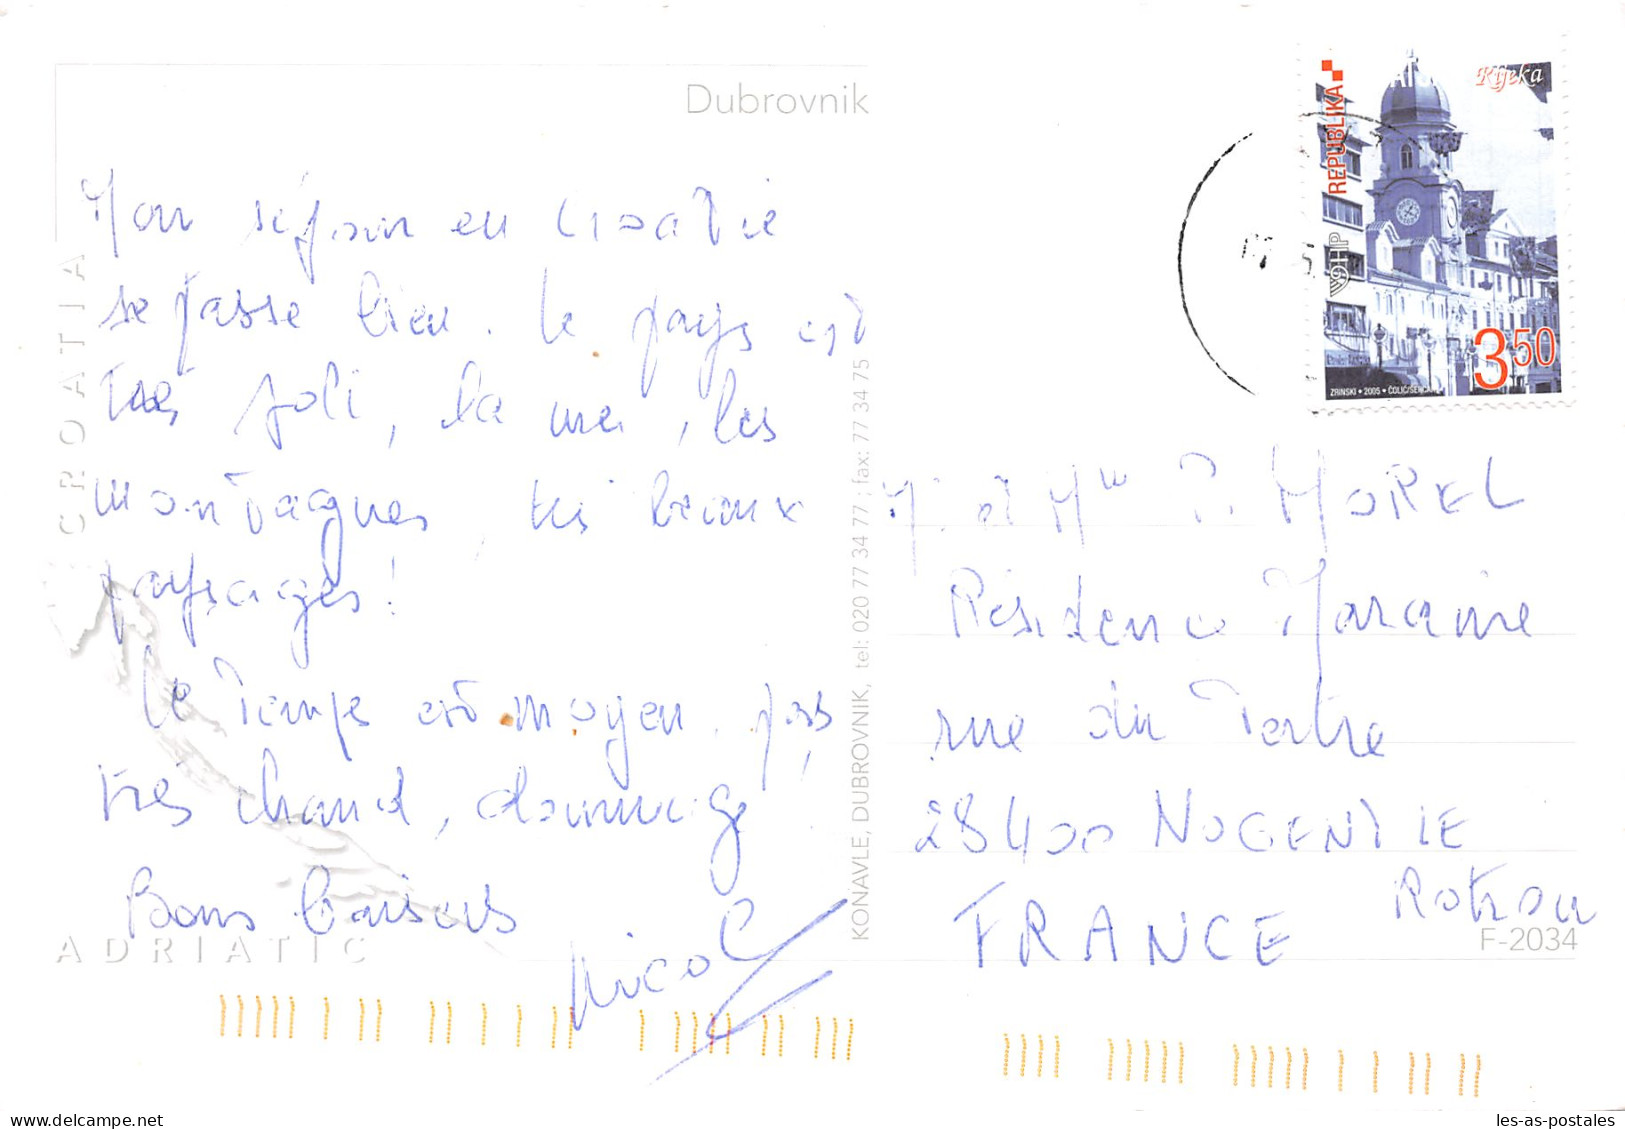 Dubrovnik
CROATIA
ADRIATIC
Mon séjour en Croatie
se passe bien. Le pays est
très joli, la mer, les
montagnes, très beaux
paysages!
Le temps est moyen, pas
très chaud, dommage
Bons baisers
Nicole
KONAVLE, DUBROVNIK, tel: 020 77 34 77 ; fax: 77 34 75
REPUBLIKA
HP
Rijeka
3,50
ZRINSKI • 2005 •
M. et Mme P. MOREL
Résidence
rue du Tertre
28400 NOGENT LE
Rotrou
FRANCE
F-2034
les-as-postales